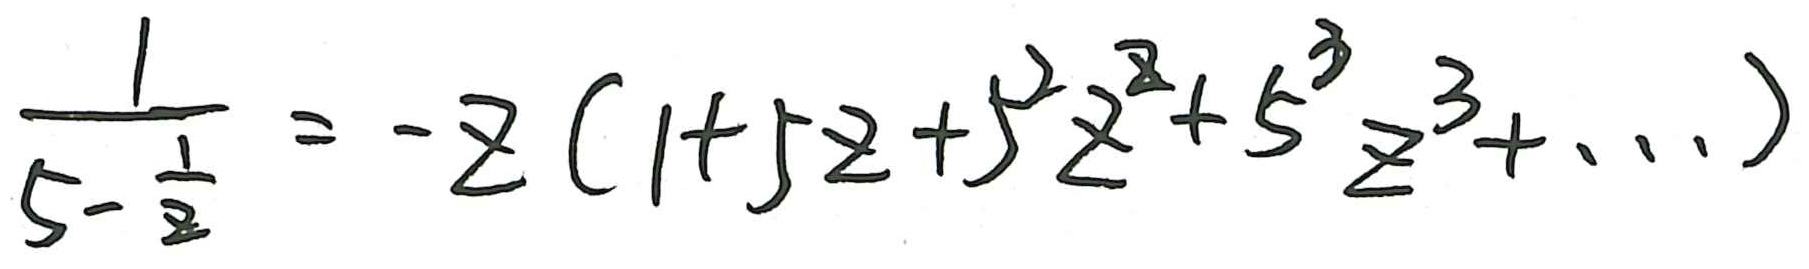 \frac{1}{5-\frac{1}{z}} = -z(1+5z+5^2z^2+5^3z^3+\cdots)